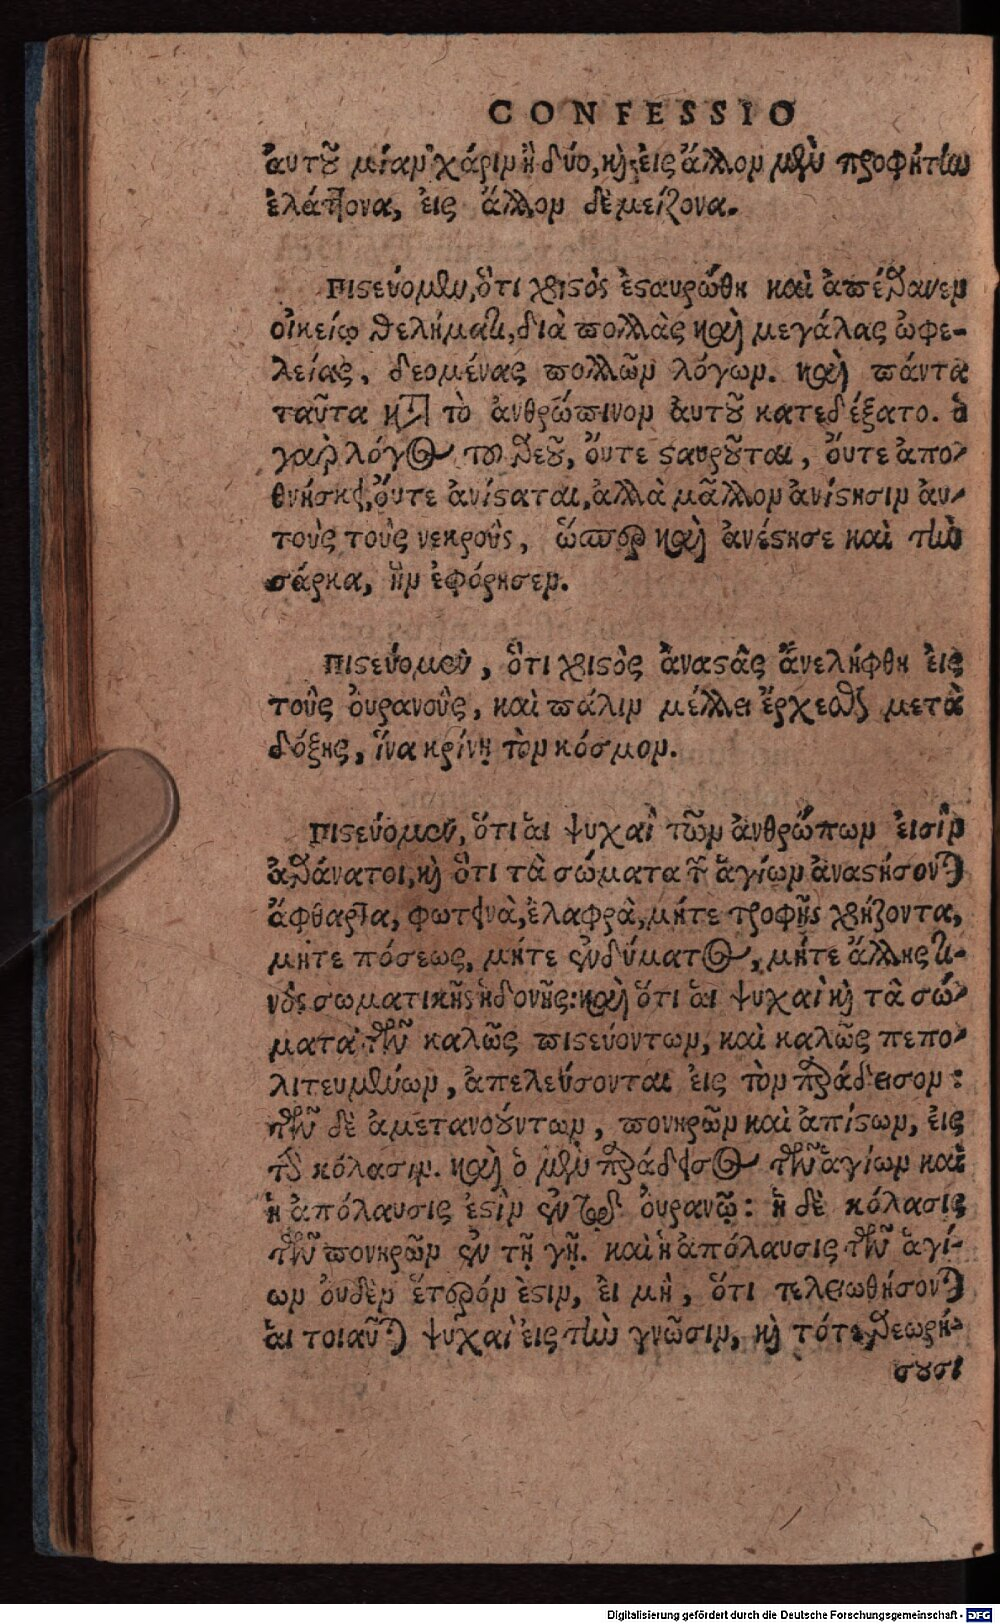 CONFESSIO
ἀυτȣ͂ μίαν χάριν ἢ δύο, κỳ εἰς ἄλλον μὲν προφήτην
ἐλάττονα, εἰς ἄλλον δὲ μείζονα.
Πιϛεύομεν, ὅτι χριϛὸς ἐϛαυρώθη καὶ ἀπέθανεν
οἰκείῳ θελήματι, διὰ πολλὰς καὶ μεγάλας ὠφε-
λείας, δεομένας πολλῶν λόγων. καὶ πάντα
ταῦτα κατὰ τὸ ἀνθρώπινον ἀυτȣ͂ κατεδέξατο. ὁ
γὰρ λόγος τοῦ θεȣ͂, ὄυτε ϛαυρȣ͂ται, ὄυτε ἀπο-
θνήσκει, ὄυτε ἀνίϛαται, ἀλλὰ μᾶλλον ἀνίϛησιν ἀυ-
τοὺς τοὺς νεκροὺς, ὥσπερ καὶ ἀνέϛησε καὶ τὴν
σάρκα, ἣν ἐφόρησεν.
Πιϛεύομεν, ὅτι χριϛὸς ἀναϛὰς ἀνελήφθη εἰς
τοὺς ὀυρανοὺς, καὶ πάλιν μέλλει ἔρχεσθαι μετὰ
δόξης, ἵνα κρίνῃ τὸν κόσμον.
Πιϛεύομεν, ὅτι ἁι ψυχαὶ τῶν ἀνθρώπων ἐισὶν
ἀθάνατοι, κỳ ὅτι τὰ σώματα τῶν ἁγίων ἀναϛήσονται
ἄφθαρτα, φωτεινὰ, ἐλαφρὰ, μήτε τροφῆς χρήζοντα,
μήτε πόσεως, μήτε ἐνδύματος, μήτε ἄλλης τι-
νὸς σωματικῆς ἡδονῆς: καὶ ὅτι ἁι ψυχαὶ κỳ τὰ σώ-
ματα τῶν καλῶς πιϛεύοντων, καὶ καλῶς πεπο-
λιτευμένων, ἀπελεύσονται εἰς τὸν παράδεισον:
τῶν δὲ ἀμετανοȣ́ντων, πονηρῶν καὶ ἀπίϛων, εἰς
τὴν κόλασιν. καὶ ὁ μὲν παράδεισος τῶν ἁγίων καὶ
ἡ ἀπόλαυσις ἐϛὶν ἐν τῷ ὀυρανῷ: ἡ δὲ κόλασις
τῶν πονηρῶν ἐν τῇ γῇ. καὶ ἡ ἀπόλαυσις τῶν ἁγί-
ων ὀυδὲν ἕτερόν ἐϛιν, ἐι μὴ, ὅτι τελειωθήσονται
ἁι τοιαῦται ψυχαὶ εἰς τὴν γνῶσιν, κỳ τότε θεωρή-
σȣσι
Digitalisierung gefördert durch die Deutsche Forschungsgemeinschaft - DFG